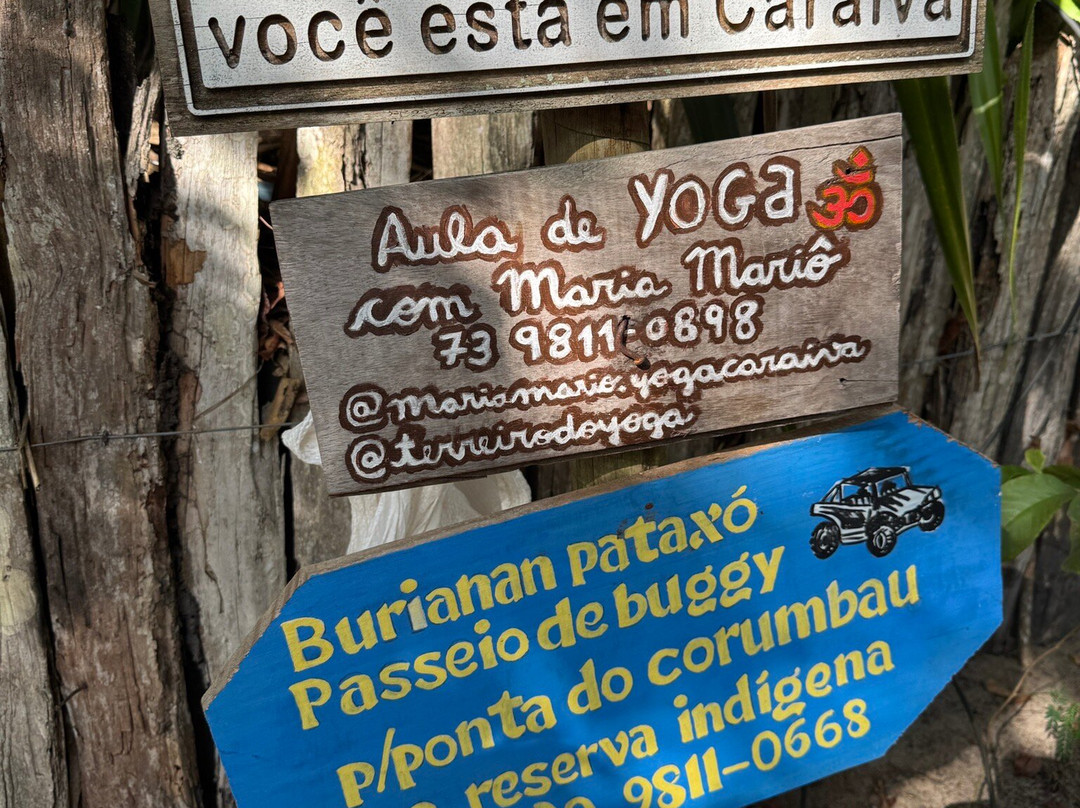 você está em Caraíva
Aula de YOGA ॐ
com Maria Mariô
73 9811-0898
@mariamario.yogacaraiva
@terreirodoyoga
Burianan pataxó
Passeio de buggy
p/ponta do corumbau
reserva indígena
9811-0668